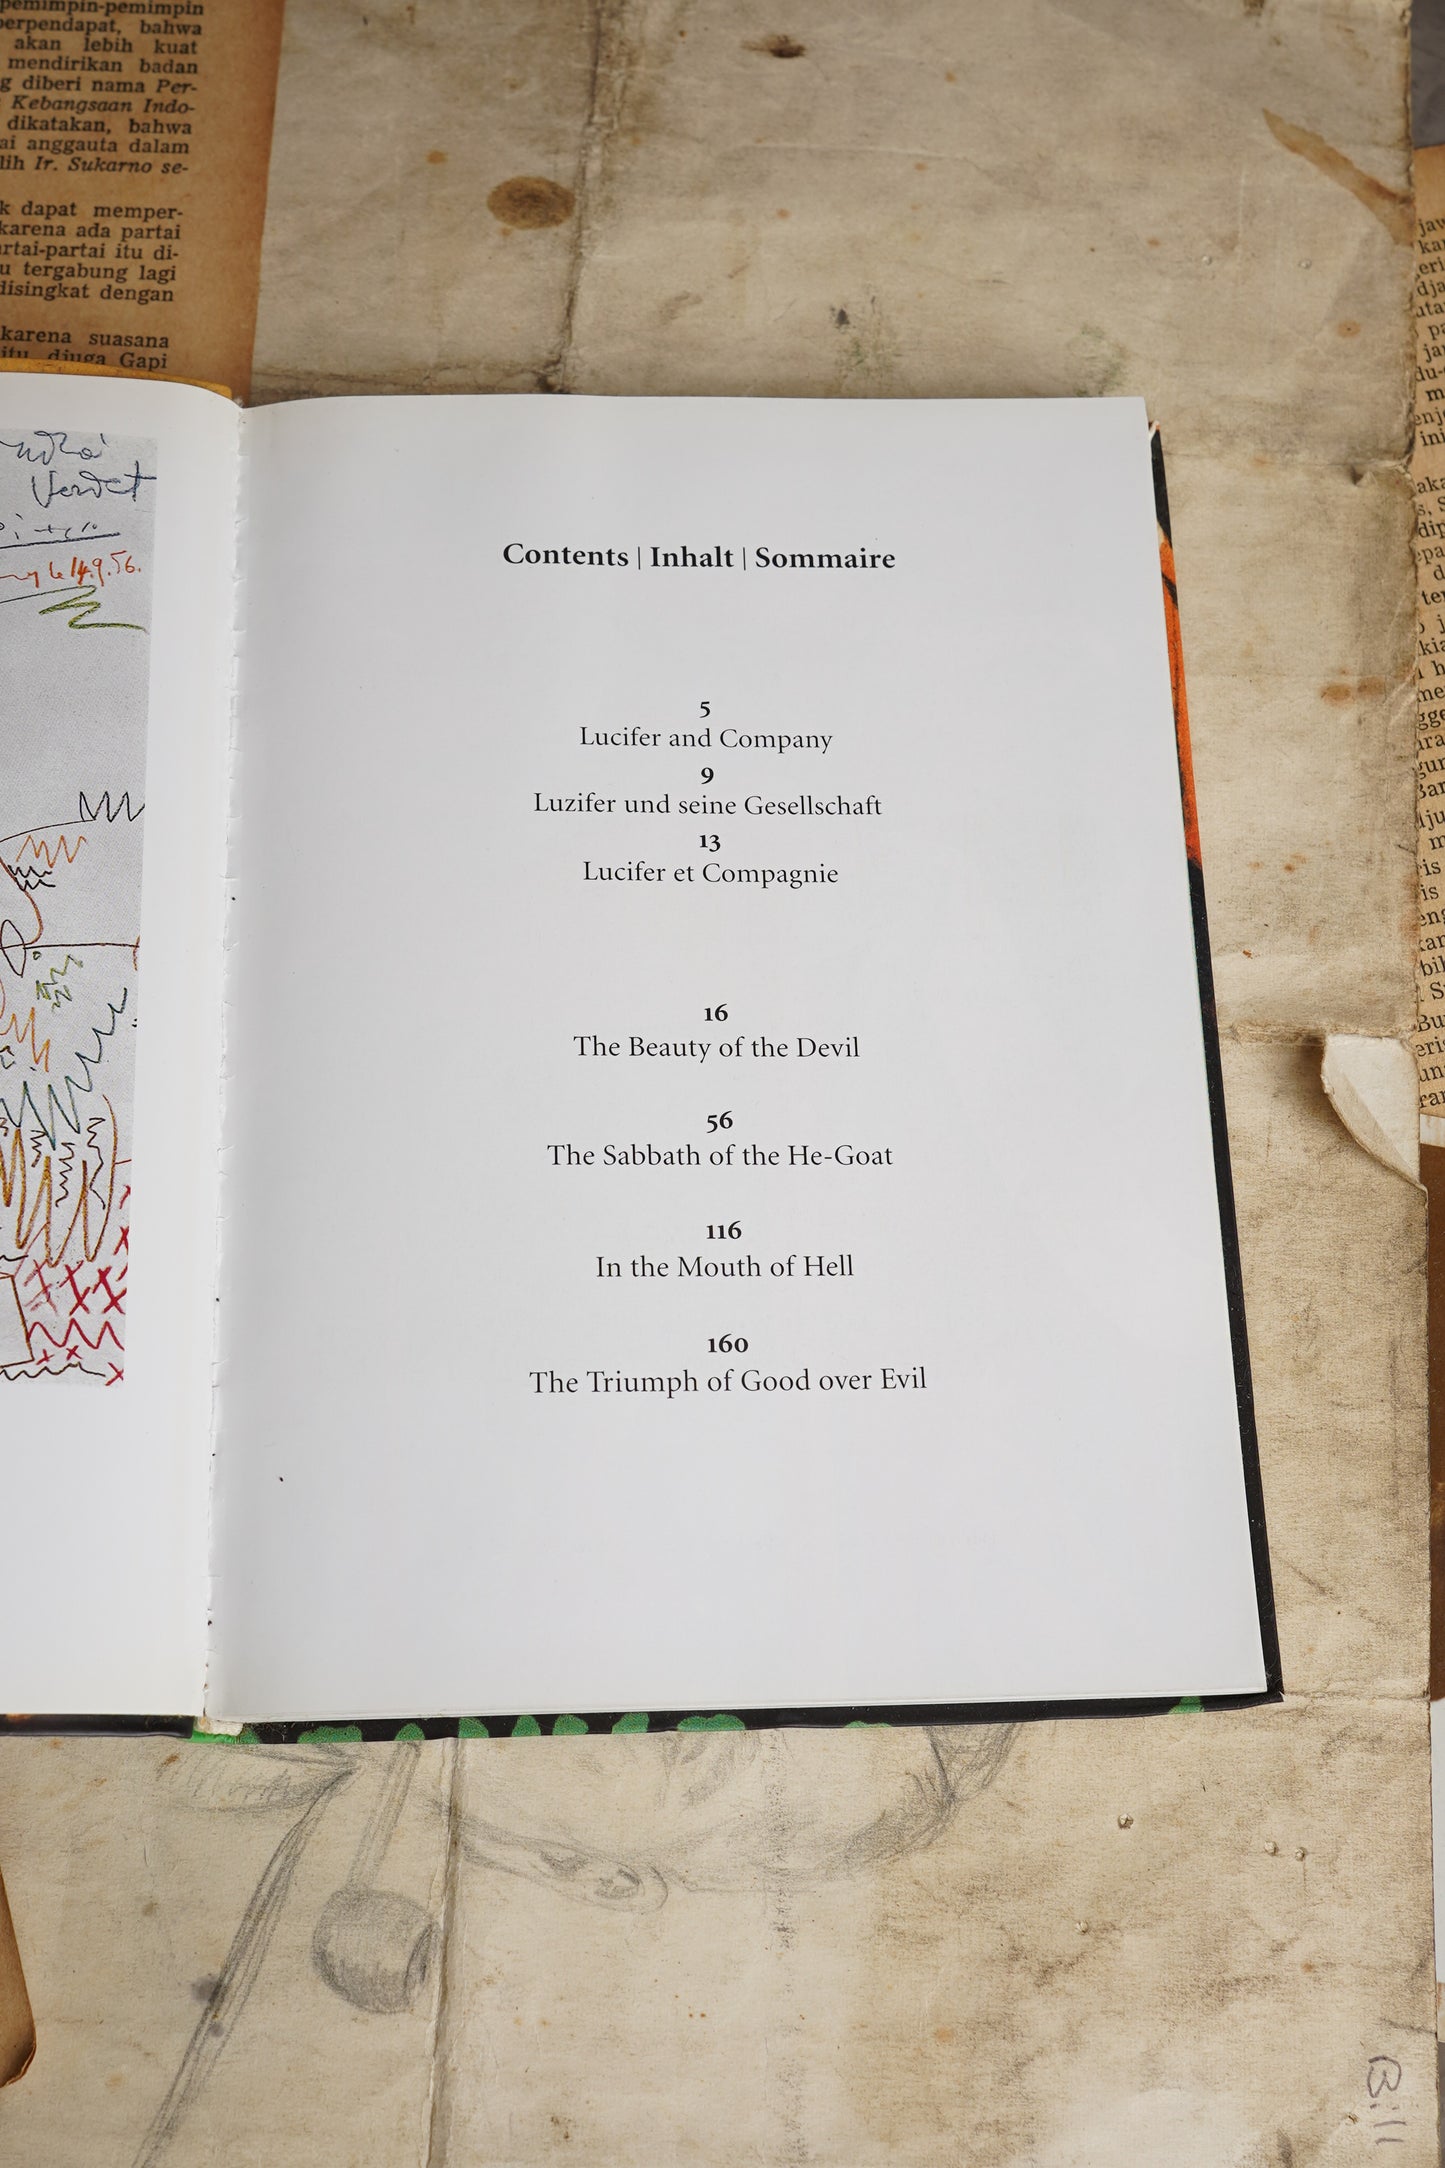 pemimpin-pemimpin
berpendapat, bahwa
akan lebih kuat
mendirikan badan
g diberi nama Per-
Kebangsaan Indo-
dikatakan, bahwa
ai anggauta dalam
lih Ir. Sukarno se-
k dapat memper-
karena ada partai
artai-partai itu di-
u tergabung lagi
disingkat dengan
karena suasana
itu djuga Gapi
Verdet
14.9.56.
Contents | Inhalt | Sommaire
5
Lucifer and Company
9
Luzifer und seine Gesellschaft
13
Lucifer et Compagnie
16
The Beauty of the Devil
56
The Sabbath of the He-Goat
116
In the Mouth of Hell
160
The Triumph of Good over Evil
Bill